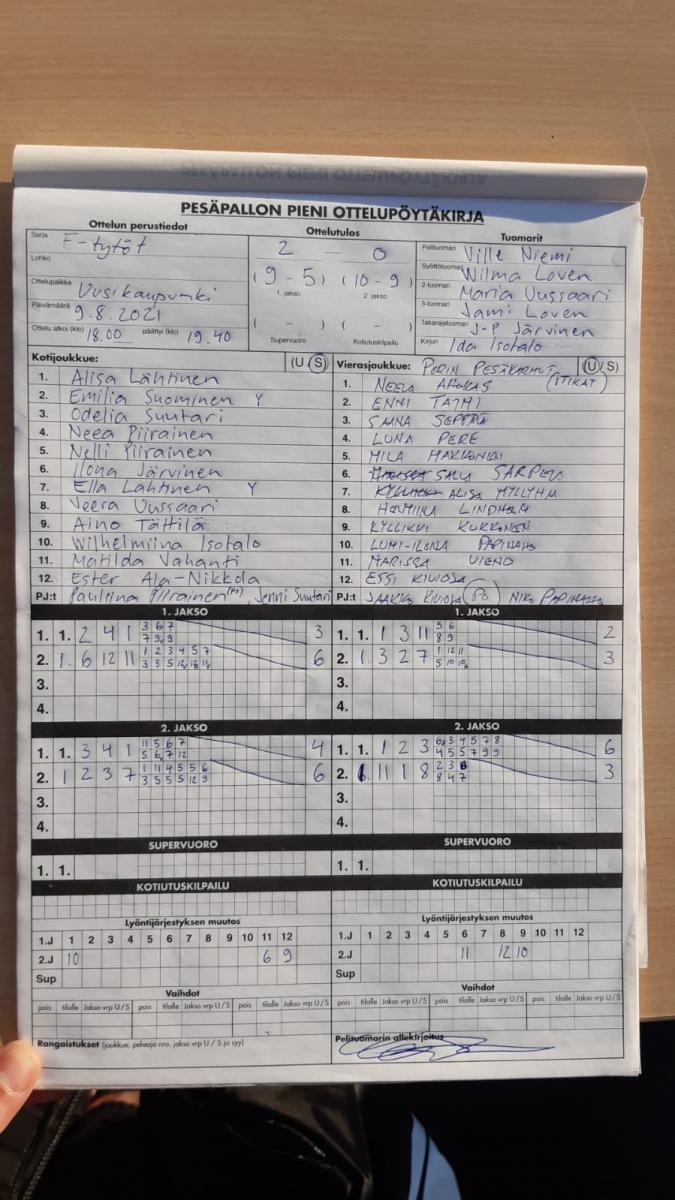 PESÄPALLON PIENI OTTELUPÖYTÄKIRJA
Ottelun perustiedot
Sarja F-tytöt
Lohko
Ottelupaikka Uusikaupunki
Päivämäärä 9.8.2021
Ottelu alkoi (klo) 18.00 päättyi (klo) 19.40
Ottelutulos
2 - 0
(9-5) (10-9)
1. jakso 2. jakso
( - ) ( - )
Supervuoro Kotiutuskilpailu
Tuomarit
Pelituomari Ville Niemi
Syöttötuomari Wilma Loven
2-tuomari Maria Uussaari
3-tuomari Jami Loven
Takarajatuomari J-P Järvinen
Kirjuri Ida Isotalo
Kotijoukkue: (U S)
1. Alisa Lähtinen
2. Emilia Suominen Y
3. Odelia Suutari
4. Neea Piirainen
5. Nelli Piirainen
6. Ilona Järvinen
7. Ella Lahtinen Y
8. Veera Uussaari
9. Aino Tättilä
10. Wilhelmiina Isotalo
11. Matilda Vahanti
12. Ester Ala-Nikkola
PJ:t Pauliina Piirainen (Po), Jenni Suutari
Vierasjoukkue: PORIN PESÄKARHUT (U/S)
(ITIKAT)
1. NEELA AHOKAS
2. ENNI TAIMI
3. SAANA SEPPÄ
4. LUNA PERE
5. MILA
6. SALLI
7. ALISA MYLLYMÄ
8. LINDHOLM
9. KYLLIKKI KUKKONEN
10. LUMI-ILONA
11. MARISSA VIENO
12. ESSI KIVIOJA
PJ:t JAAKKO KIVIOJA (PO) NIKO
1. JAKSO
1. 1. 2 4 1 3 6 7 3
7 9 9
2. 1. 6 12 11 1 2 3 4 5 7 6
3.
4.
1. JAKSO
1. 1. 1 3 11 5 6 2
8 9
2. 1. 3 2 7 1 12 11 3
3.
4.
2. JAKSO
1. 1. 3 4 1 11 5 6 7 4
5 6 7 12
2. 1 2 3 7 1 11 4 5 5 6 6
3 5 5 5 12 9
3.
4.
2. JAKSO
1. 1. 1 2 3 6 3 4 5 7 8 6
4 5 5 7 9 9
2. 11 1 8 2 3 3
8 4 7
3.
4.
SUPERVUORO
1. 1.
SUPERVUORO
1. 1.
KOTIUTUSKILPAILU
KOTIUTUSKILPAILU
Lyöntijärjestyksen muutos
1.J 1 2 3 4 5 6 7 8 9 10 11 12
2.J 10 6 9
Sup
Lyöntijärjestyksen muutos
1.J 1 2 3 4 5 6 7 8 9 10 11 12
2.J 11 12 10
Sup
Vaihdot
pois tilalle Jakso vrp U/S pois tilalle Jakso vrp U/S pois tilalle Jakso vrp U/S
Vaihdot
pois tilalle Jakso vrp U/S pois tilalle Jakso vrp U/S pois tilalle Jakso vrp U/S
Rangaistukset (joukkue, pelaaja nro, jakso vrp U / S ja syy)
Pelituomarin allekirjoitus